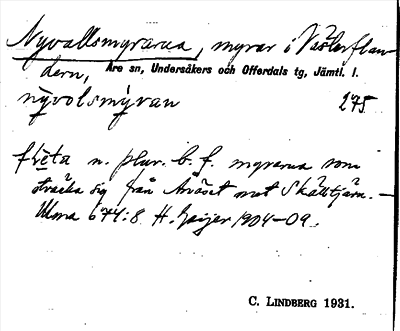 Nyvallsmyrarna, myrar i Västerflan-
dern, Åre sn, Undersåkers och Offerdals tg, Jämtl. l.
nỳvolsmy̨ran 275
flèta n. plur. b. f. myrarna som
sträcka sig från Åvåset mot Skålltjärn. —
Ulma 644:8 H. Geijer 1904–09.
C. LINDBERG 1931.